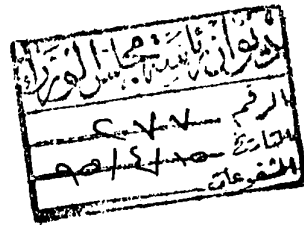 ديوان رئاسة مجلس الوزراء
الرقم ٢٧٧
التاريخ
المشفوعات